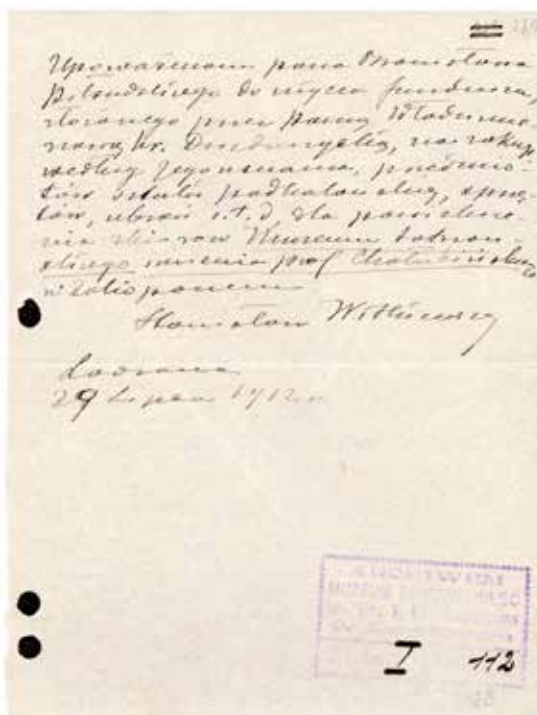 Upoważniam pana Bronisława
Piłsudskiego do użycia funduszu,
złożonego przez Panią Włodzimie-
rzową hr. Dzieduszycką, na zakup
według Jego uznania, przedmio-
tów sztuki podhalańskiej, sprzę-
tów, ubrań i.t.d. dla powiększe-
nia zbiorów Muzeum Tatrzań-
skiego imienia prof Chałubińskiego
w Zakopanem
Stanisław Witkiewicz
Lovrana
29 Lipca 1912 r
ARCHIWUM
I 112